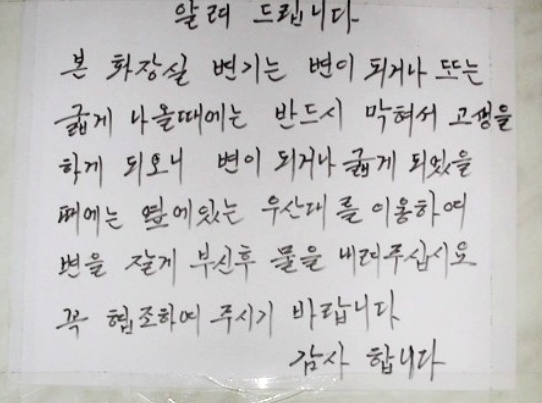 알려 드립니다
본 화장실 변기는 변이 되거나 또는
굵게 나올때에는 반드시 막혀서 고생을
하게 되오니 변이 되거나 굵게 되었을
때에는 옆에있는 우산대를 이용하여
변을 잘게 부신후 물을 내려주십시요
꼭 협조하여 주시기 바랍니다
감사 합니다